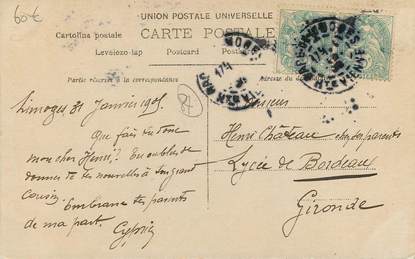 60€
UNION POSTALE UNIVERSELLE
CARTE POSTALE
Cartolina postale
Levelezo-lap Postcard
Partie réservée à la correspondance
174
Limoges 31 Janvier 1905
Que fais tu donc
mon cher Henri? Tu oublies de
donner de tes nouvelles à ton grand
cousin. Embrasse tes parents
de ma part. Cyprien
Monsieur
Henri Château chez ses parents
Lycée de Bordeaux
Gironde